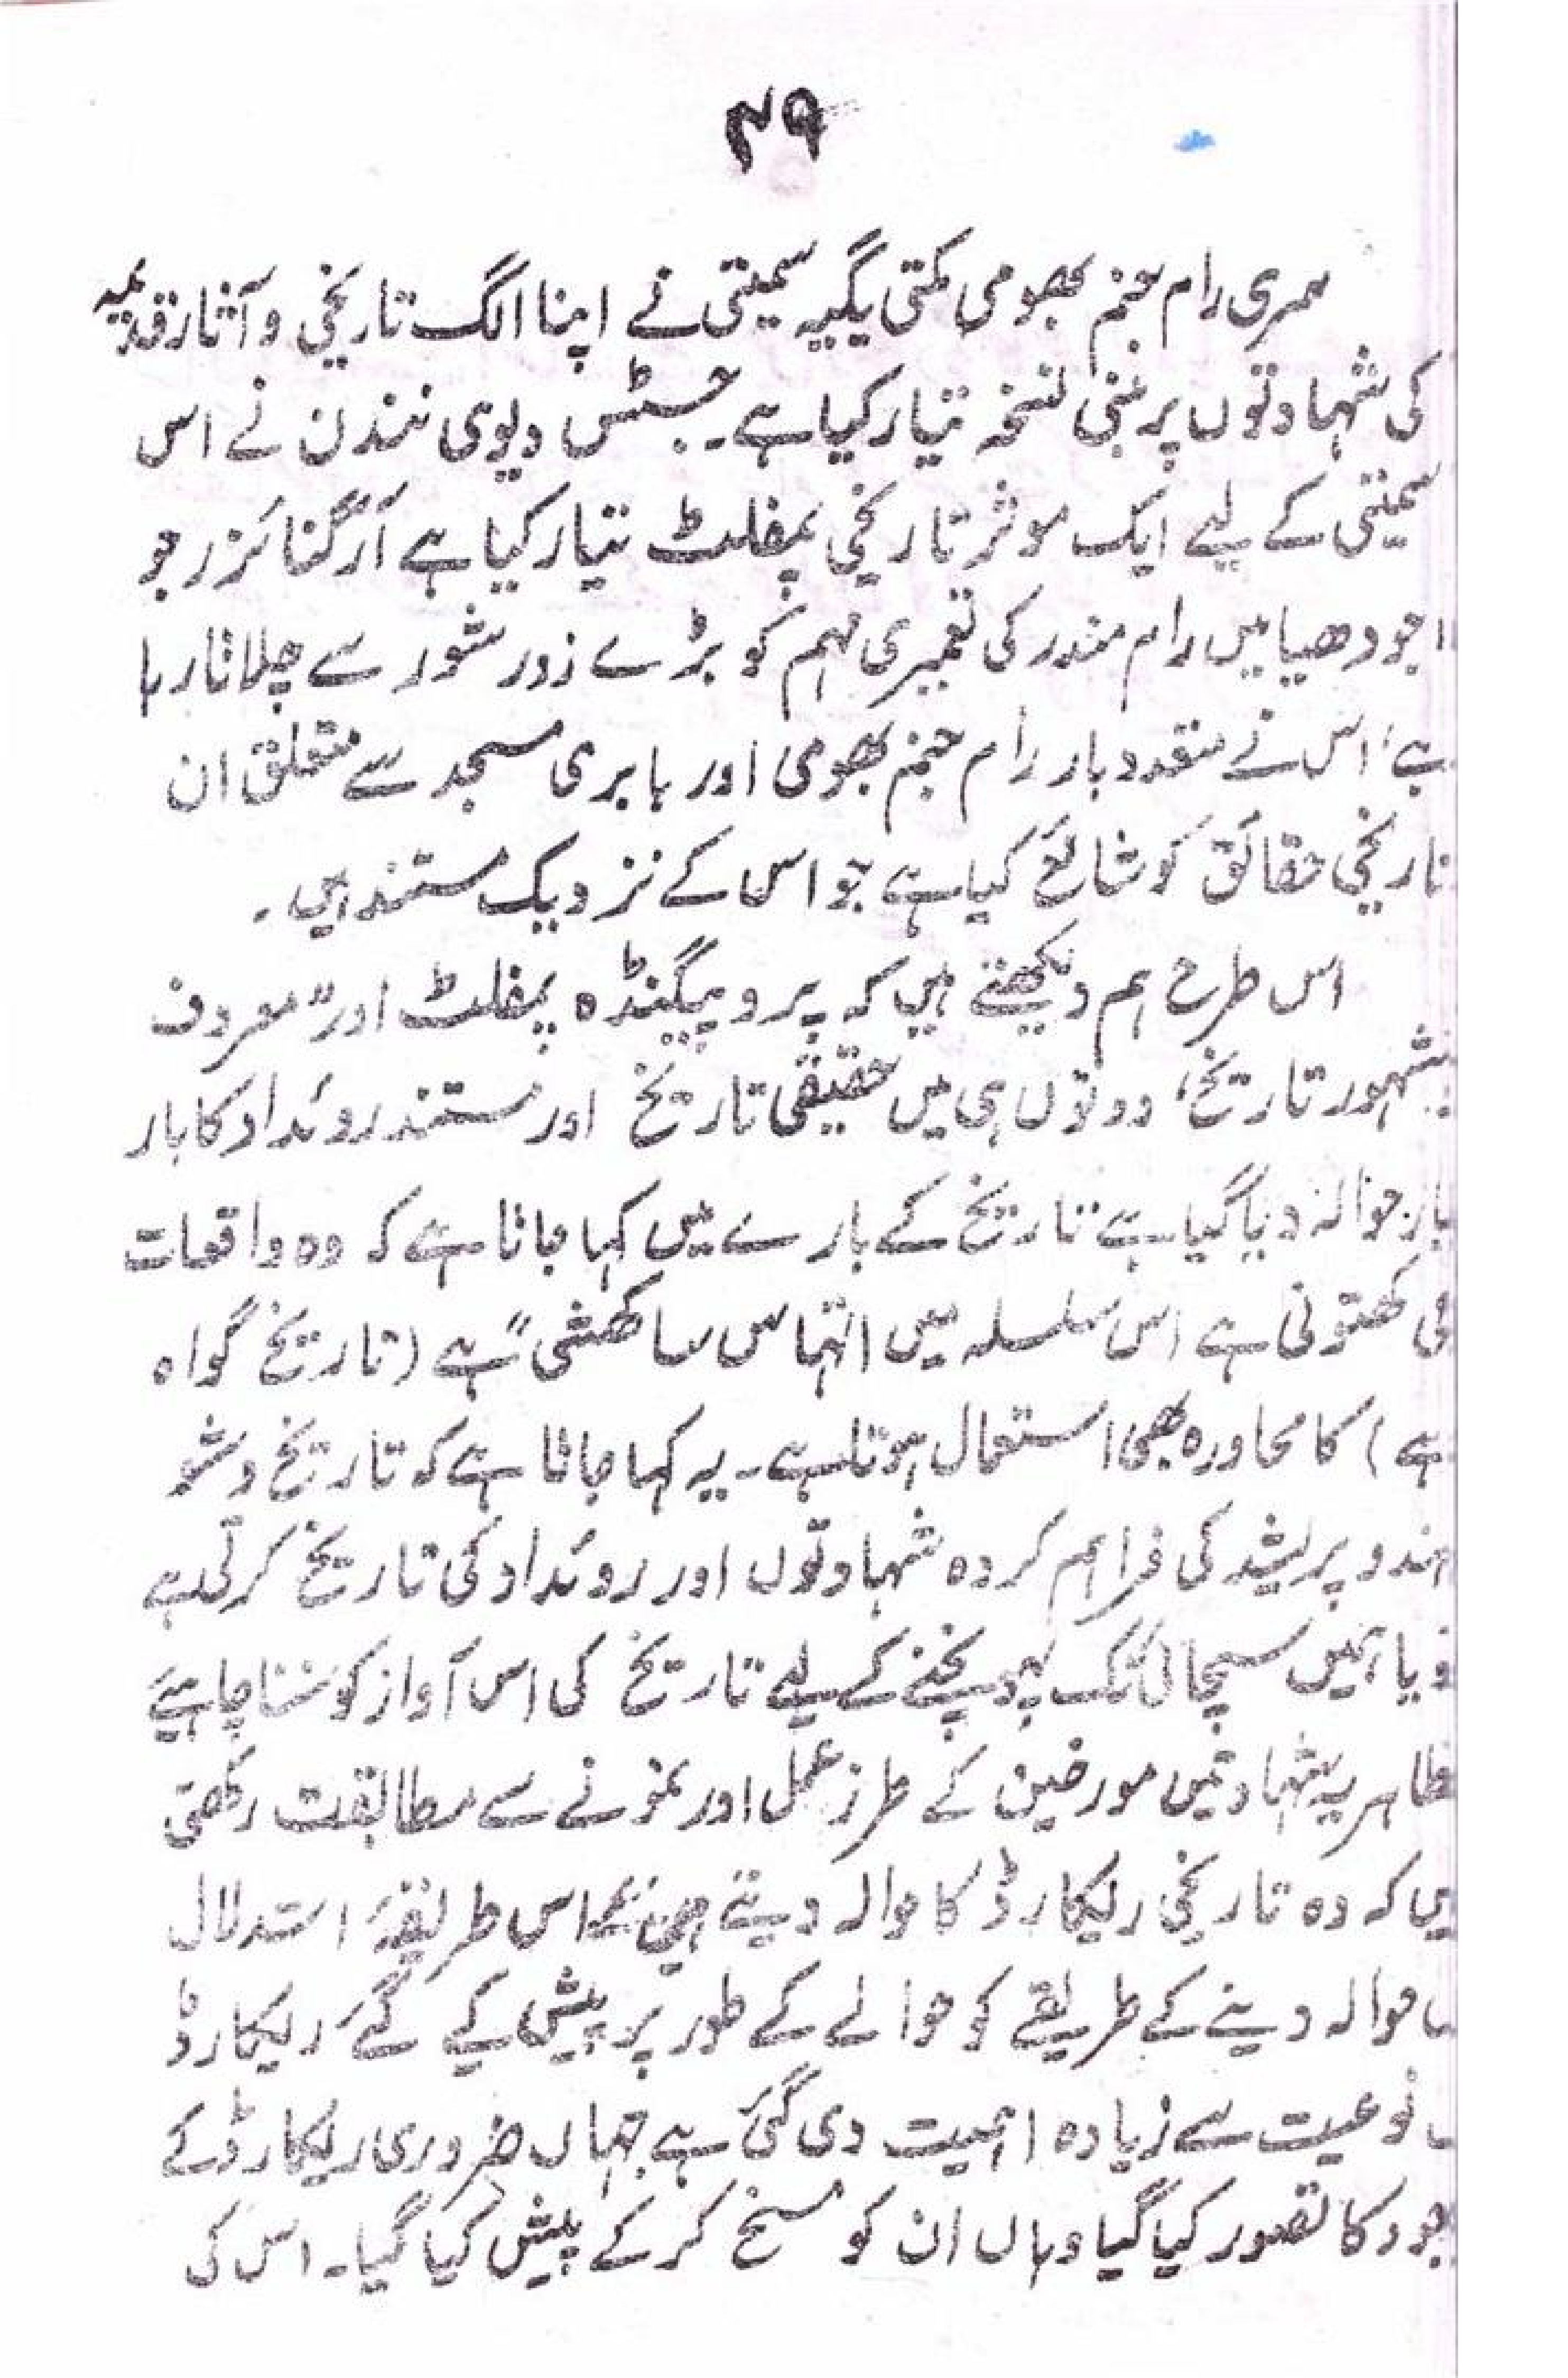 ۴۹
سری رام جنم بھومی مکتی یگیہ سمیتی نے اپنا الگ تاریخی و آثار قدیمہ
کی شہادتوں پر مبنی نسخہ تیار کیا ہے۔ جسٹس دیوی نندن نے اس
سمیتی کے لیے ایک موثر تاریخی پمفلٹ تیار کیا ہے آرگنائزر جو
اجودھیا میں رام مندر کی تعمیری مہم کو بڑے زور شور سے چلاتا رہا
ہے، اس نے متعدد بار رام جنم بھومی اور بابری مسجد سے متعلق ان
تاریخی حقائق کو شائع کیا ہے جو اس کے نزدیک مستند ہیں۔
اس طرح ہم دیکھتے ہیں کہ پروپیگنڈہ پمفلٹ اور "معروف
مشہور تاریخ، دونوں ہی میں حقیقی تاریخ اور مستند روئداد کا بار
بار حوالہ دیا گیا ہے تاریخ کے بارے میں کہا جاتا ہے کہ وہ واقعات
کی کھتونی ہے اس سلسلہ میں اتہاس ساکھشی" ہے (تاریخ گواہ
ہے) کا محاورہ بھی استعمال ہوتا ہے۔ یہ کہا جاتا ہے کہ تاریخ وشو
ہندو پریشد کی فراہم کردہ شہادتوں اور روئداد کی تاریخ کرتی ہے
گویا ہمیں سچائی تک پہونچنے کے لیے تاریخ کی اس آواز کو سننا چاہیئے
بظاہر یہ شہادتیں مورخین کے طرز عمل اور نمونے سے مطابقت رکھتی
ہیں کہ وہ تاریخی ریکارڈ کا حوالہ دیتے ہیں اس طریقۂ استدلال
حوالہ دینے کے طریقے کو حوالے کے طور پر پیش کیے گئے ریکارڈ
نوعیت سے زیادہ اہمیت دی گئی ہے جہاں ضروری ریکارڈ کے
وجود کا تصور کیا گیا وہاں ان کو مسخ کر کے پیش کیا گیا۔ اس کی